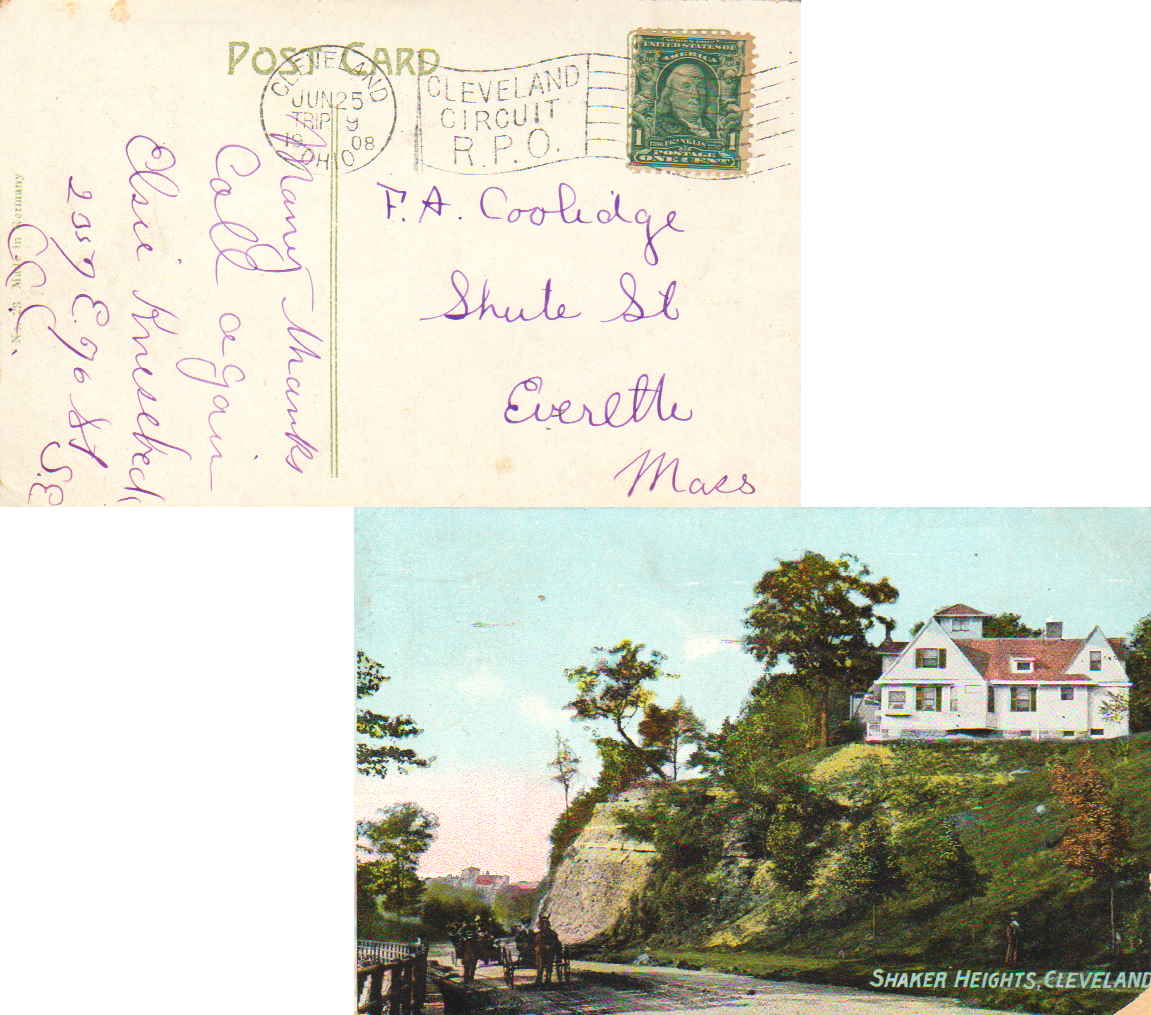 POST CARD
CLEVELAND
JUN 25
TRIP 9
19 08
OHIO
CLEVELAND
CIRCUIT
R.P.O.
SERIES 1902
UNITED STATES OF
AMERICA
1 FRANKLIN 1
POSTAGE
ONE CENT
F. A. Coolidge
Shute St
Everette
Mass
Many thanks
Call again
Elsie Knesebeck
E. 70 St
S.E
Made in Germany
SHAKER HEIGHTS, CLEVELAND